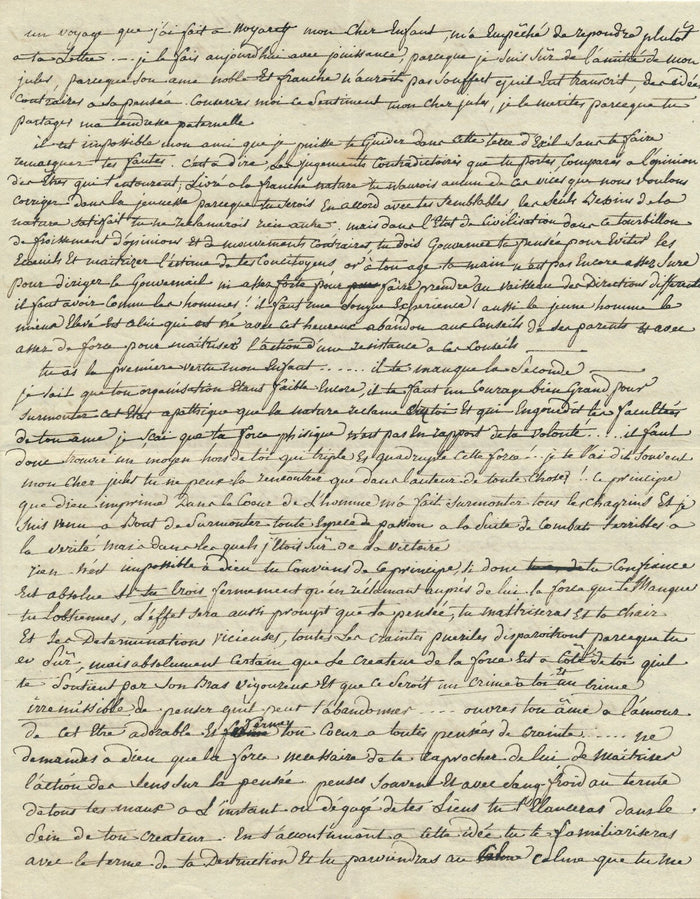 un voyage que j'ai fait a mon cher Enfant, m'a Empêché de repondre plutôt
a ta Lettre --.. je le fais aujourd'hui avec jouissance, parceque je suis sûr de l'amitié de mon
jules, parceque son ame noble et franche n'auroit pas souffert qu'il eut transcrit, des idées
Contraires a sa pensée. Conserves moi ce sentiment mon cher jules, je le merites parceque tu
partages ma tendresse paternelle
il est impossible mon ami que je puisse te Guider dans cette terre d'Exil sans te faire
remarquer tes fautes. c'est a dire, Les jugements Contradictoires que tu portes Comparés a l'opinion
des Etres qui t'entourent; Livré a la franche nature tu n'aurois aucun de ces vices que nous voulons
corriger dans la jeunesse parceque tu serois En accord avec tes semblables les seuls Besoins de la
nature satisfait tu ne reclamerois rien autre. mais dans l'Etat de Civilisation dans ce tourbillon
de froissement d'opinions et de mouvements contraires, tu dois Gouverner ta pensée pour Eviter les
Ecueils et maitriser l'estime de tes Concitoyens, or a ton age ta main n'est pas Encore assez sure
pour diriger le Gouvernail ni assez forte pour faire prendre au vaisseau des Directions differentes
il faut avoir Connu les hommes! il faut une longue Experience! aussi le jeune homme le
mieux Elevé Est celui qui est né avec cet heureux abandon aux Conseils de ses parents et avec
assez de force pour maitriser l'action d'une resistance a ces Conseils
tu as la premiere vertu mon Enfant ...... il te manque la seconde
je sait que ton organisation Etant faible Encore, il te faut un Courage bien Grand pour
surmonter cet Etat apathique que la nature reclame Et qui Engourdit les facultées
de ton ame je scai que ta force phisique n'est pas En rapport de ta volonté .... il faut
donc trouver un moyen hors de toi qui triple Et quadruple Cette force!.. je te l'ai dit souvent
mon cher jules tu ne peux la rencontrer que dans l'auteur de toute choses!.. Ce principe
que dieu imprime Dans le Coeur de L'homme m'a fait surmonter tous les chagrins Et je
suis venu a Bout de surmonter toute Espece de passion a la suite de Combats terribles a
la verité mais dans les quels j'Etois sûr de la victoire
rien n'est impossible à dieu tu Conviens de ce principe, si donc ta Confiance
Est absolue si tu Crois fermement qu'en reclamant auprès de lui la force qui te Manque
tu l'obtiennes, L'effet sera aussi prompt que ta pensée, tu maitriseras Et ta chair
Et Les Determinations vicieuses, toutes Les craintes pueriles disparoitront parceque tu
es sûr, mais absolument certain que le Createur de la force Est a Côté de toi qu'il
te soutient par son Bras vigoureux Et que ce seroit un crime a toi un Crime
irremissible de penser qu'il peut t'abandonner .... ouvres ton âme a l'amour
de cet Etre adorable Et fermes ton Coeur a toutes pensées de Crainte ...... ne
demandes a dieu que la force necessaire de te raprocher de lui de Maitriser
l'action des sens sur la pensée penses souvent Et avec sang froid au terme
de tous tes maux a L'instant ou dégagé de tes Liens tu t'Elanceras dans le
sein de ton createur. En t'acoutumant a cette idée tu te familiariseras
avec le terme de ta Destruction Et tu parviendras au calme que tu me